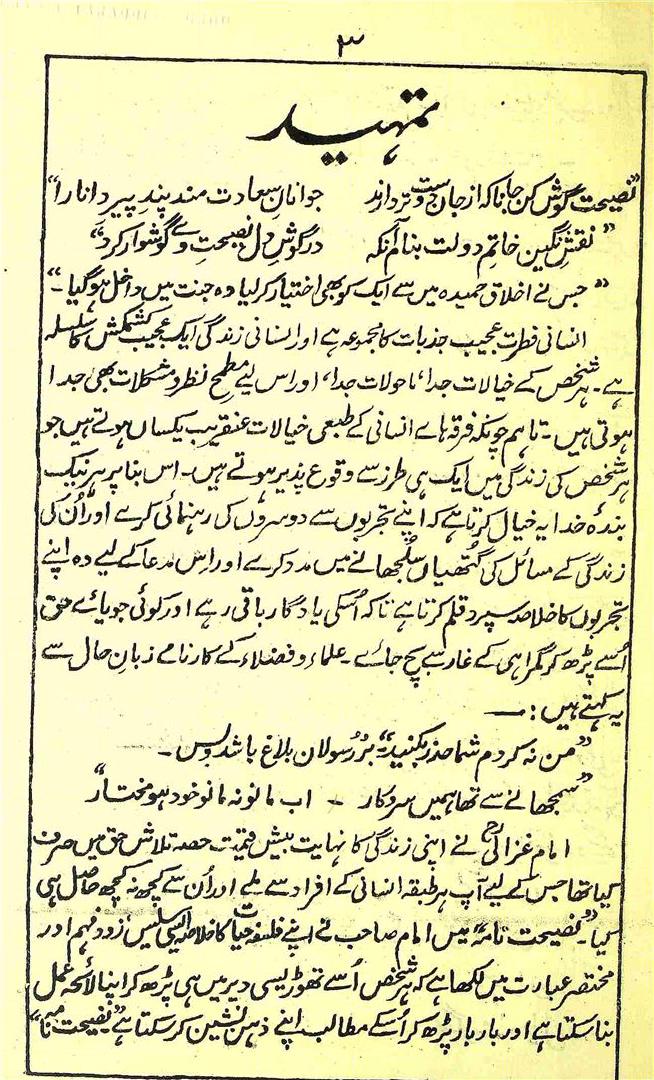 ۳
تمہید
"نصیحت گوش کن جاناں کہ از جاں دوست تر دارند جوانانِ سعادت مند پندِ پیرِ دانا را"
"نقشِ نگینِ خاتمِ دولت بنام آنکہ در گوشِ دل نصیحتِ وے گوشوار کرد"
"جس نے اخلاق حمیدہ میں سے ایک کو بھی اختیار کر لیا وہ جنت میں داخل ہو گیا۔"
انسانی فطرت عجیب جذبات کا مجموعہ ہے اور انسانی زندگی ایک عجیب کشمکش کا سلسلہ
ہے۔ ہر شخص کے خیالات جدا، ماحولات جدا، اور اس لیے مطمحِ نظر و مشکلات بھی جدا
ہوتی ہیں۔ تاہم چونکہ فرقہ ہائے انسانی کے طبعی خیالات عنقریب یکساں ہوتے ہیں جو
ہر شخص کی زندگی میں ایک ہی طرز سے وقوع پذیر ہوتے ہیں۔ اس بنا پر ہر نیک
بندۂ خدا یہ خیال کرتا ہے کہ اپنے تجربوں سے دوسروں کی رہنمائی کرے اور اُن کی
زندگی کے مسائل کی گُتھیاں سُلجھانے میں مدد کرے اور اِس مدعا کے لیے وہ اپنے
تجربوں کا خلاصہ سپردِ قلم کرتا ہے تاکہ اُسکی یادگار باقی رہے اور کوئی جویائے حق
اُسے پڑھ کر گمراہی کے غار سے بچ جائے۔ علماء و فضلاء کے کارنامے زبانِ حال سے
یہ کہتے ہیں:—
"من نہ کردم شما حذر بکنید" بر رسولاں بلاغ باشد و بس۔
"سمجھانے سے تھا ہمیں سروکار - اب مانو نہ مانو خود ہو مختار"
امام غزالیؒ نے اپنی زندگی کا نہایت بیش قیمت حصہ تلاشِ حق میں صرف
کیا تھا جس کے لیے آپ ہر طبقہ انسانی کے افراد سے ملے اور اُن سے کچھ نہ کچھ حاصل ہی
کیا۔ "نصیحت نامہ" میں امام صاحب نے اپنے فلسفۂ حیات کا خلاصہ ایسی سلیس زود فہم اور
مختصر عبارت میں لکھا ہے کہ ہر شخص اُسے تھوڑی سی دیر میں ہی پڑھ کر اپنا لائحہ عمل
بنا سکتا ہے اور بار بار پڑھ کر اُسکے مطالب اپنے ذہن نشین کر سکتا ہے "نصیحت نامہ"